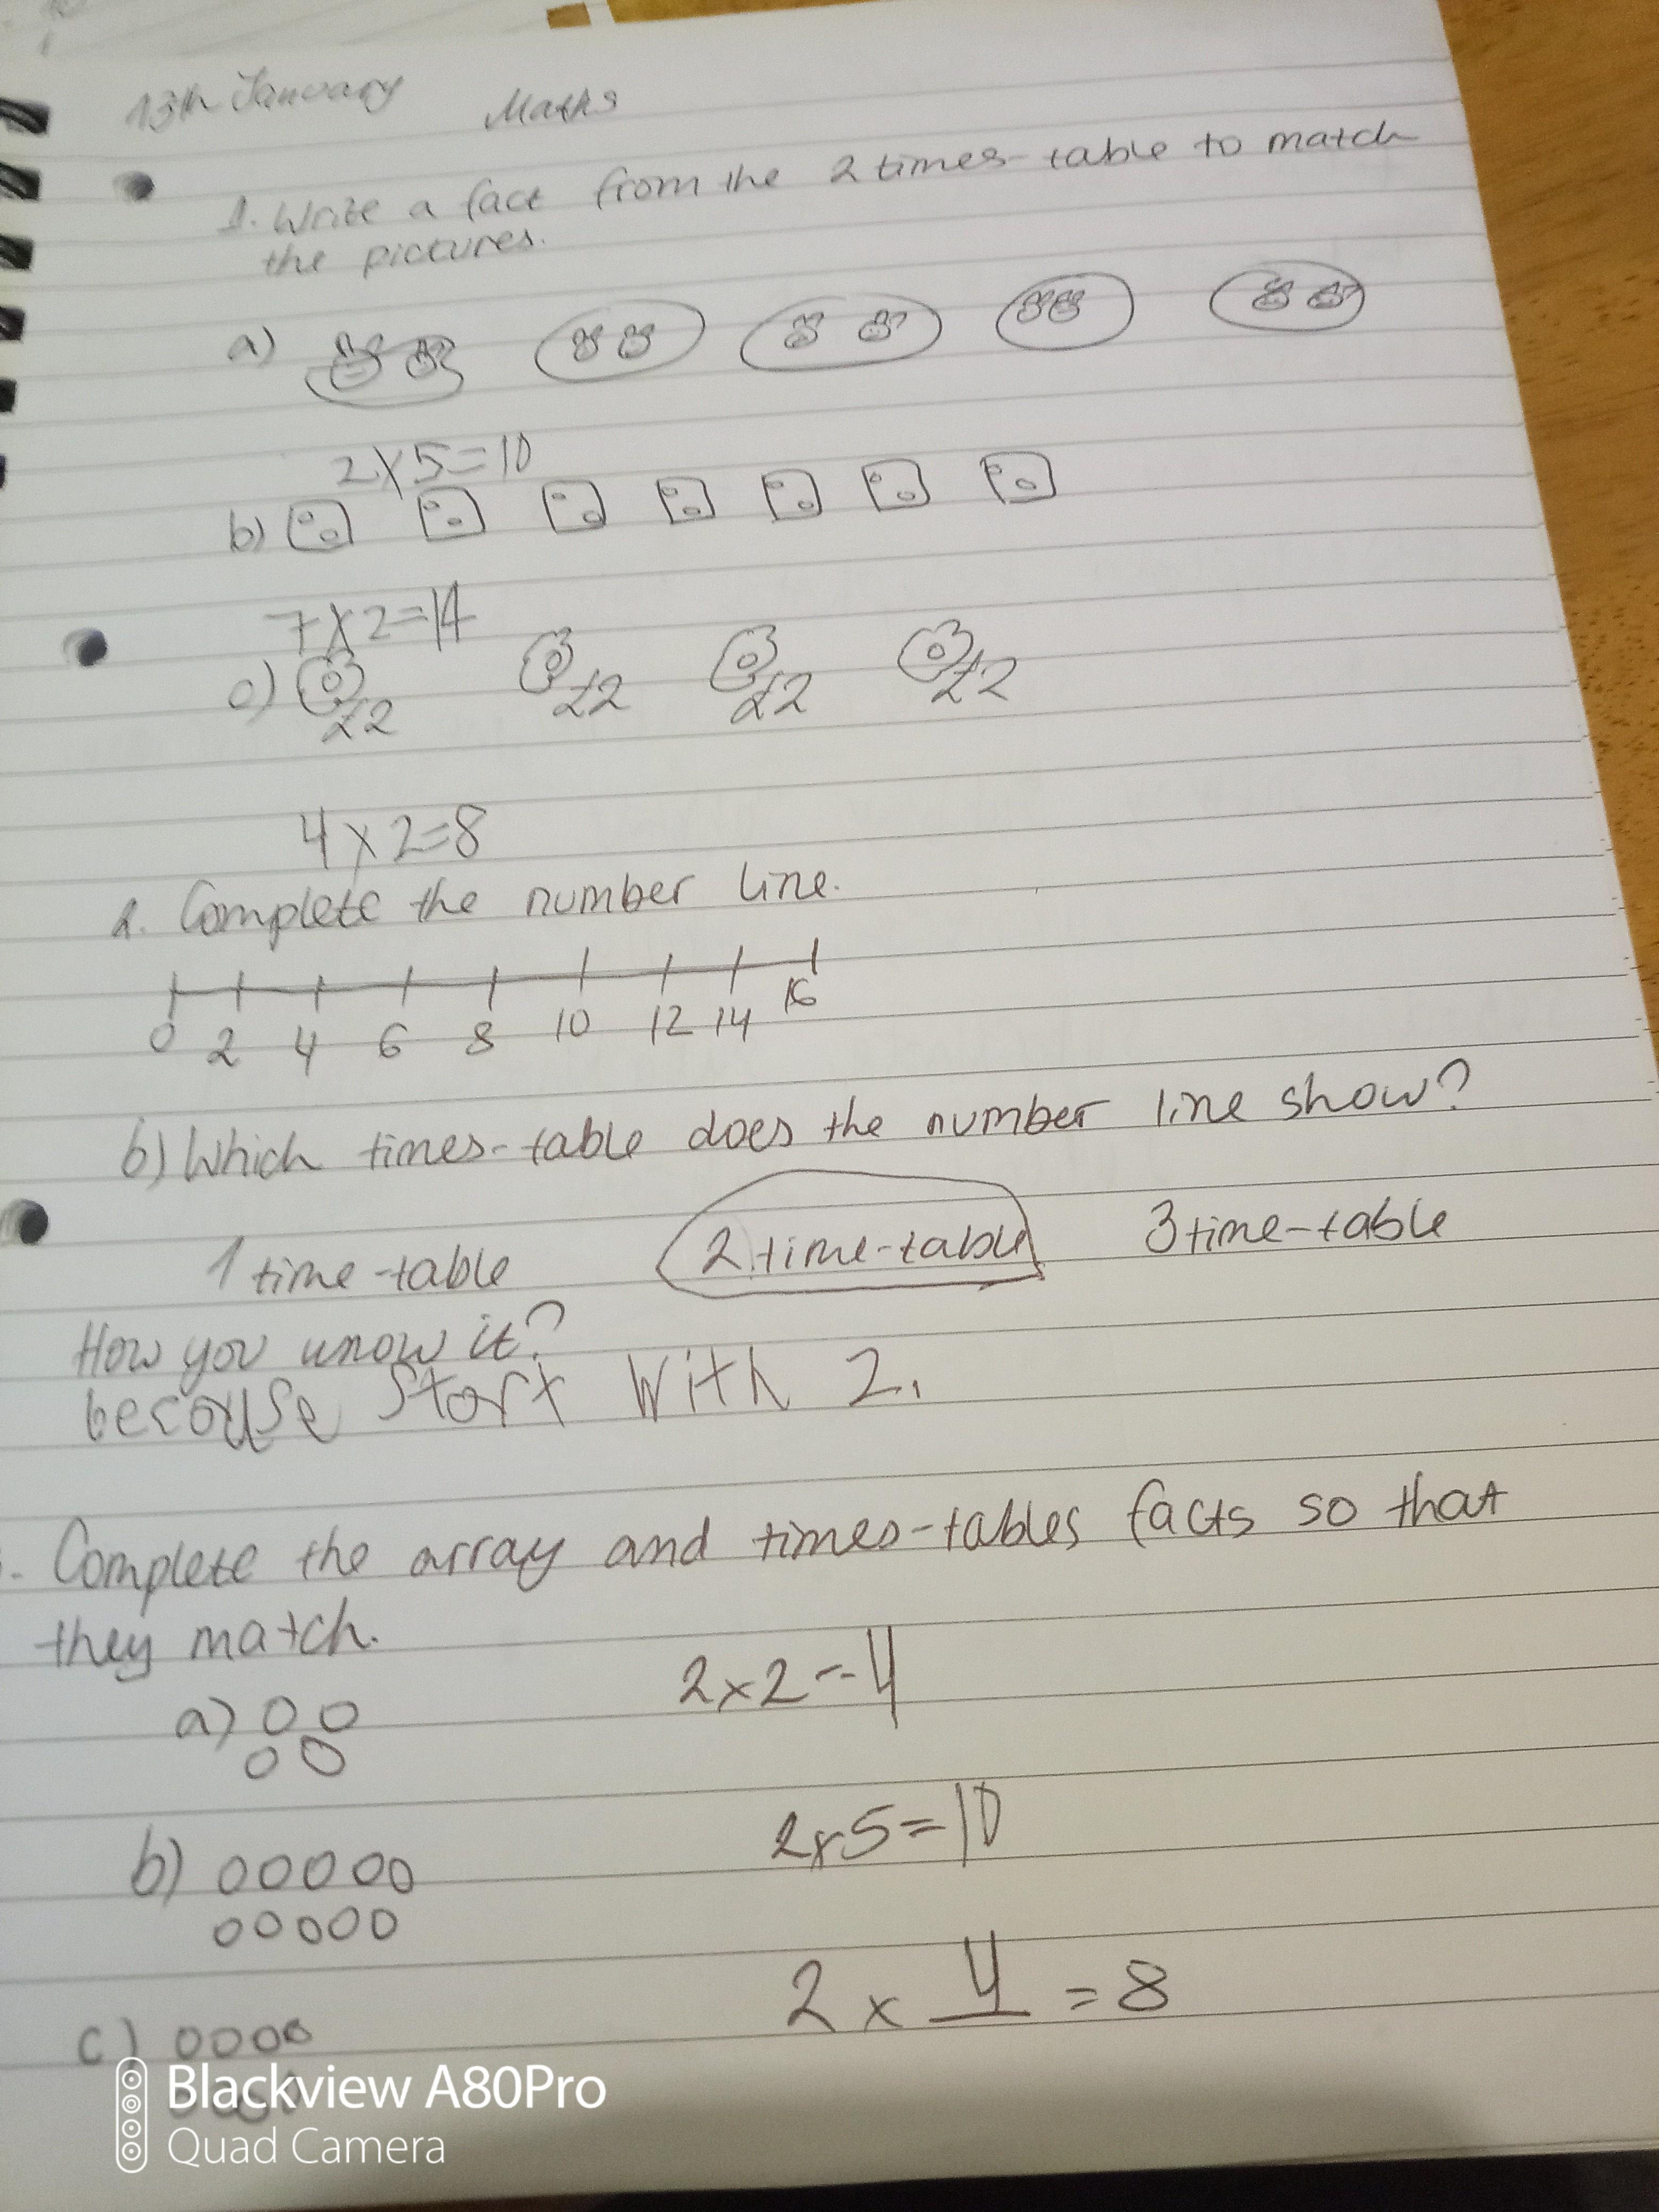 13th January Maths
1. Write a fact from the 2 times-table to match
the pictures.
a)
2x5=10
b)
7x2=14
c) £2 £2 £2 £2
4x2=8
2. Complete the number line.
0 2 4 6 8 10 12 14 16
b) Which times-table does the number line show?
1 time-table 2 time-table 3 time-table
How you know it?
becouse Stort With 2.
. Complete the array and times-tables facts so that
they match.
a) 2x2=4
b) 2x5=10
c) 2 x 4 = 8
Blackview A80Pro
Quad Camera